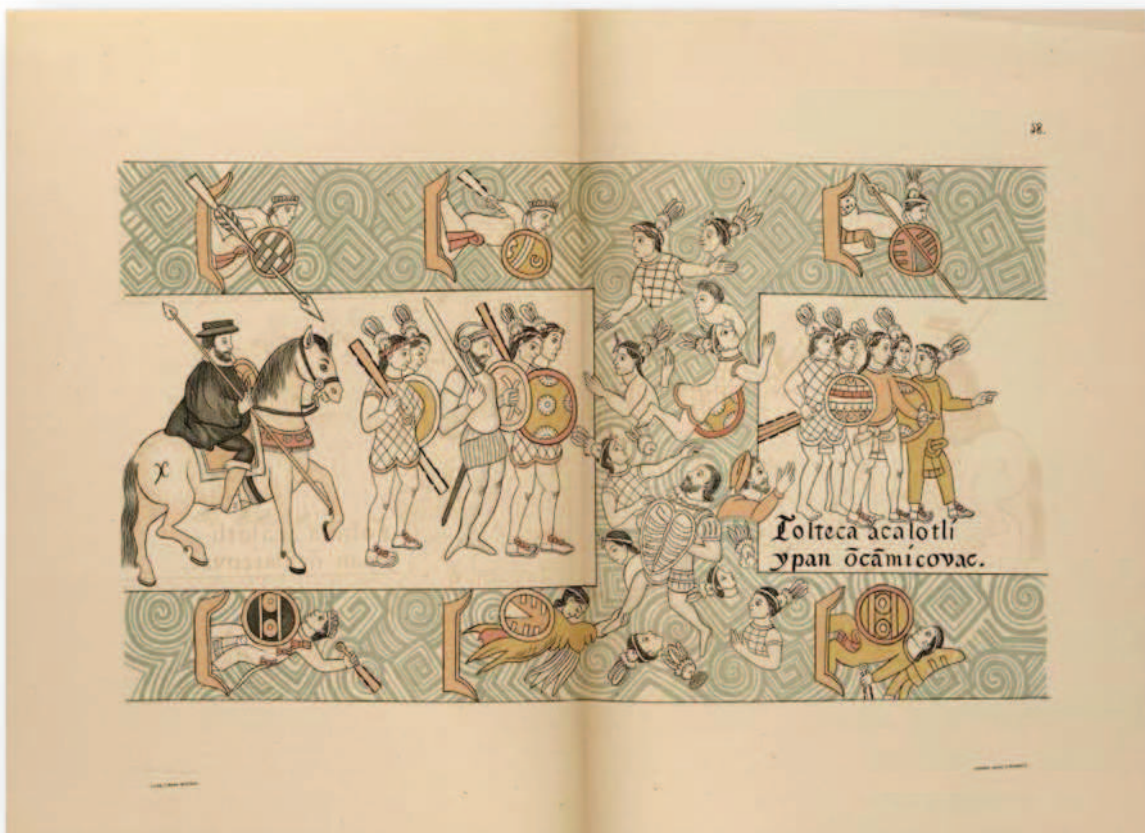 18.
Tolteca acalotli
ypan ōcāmicovac.